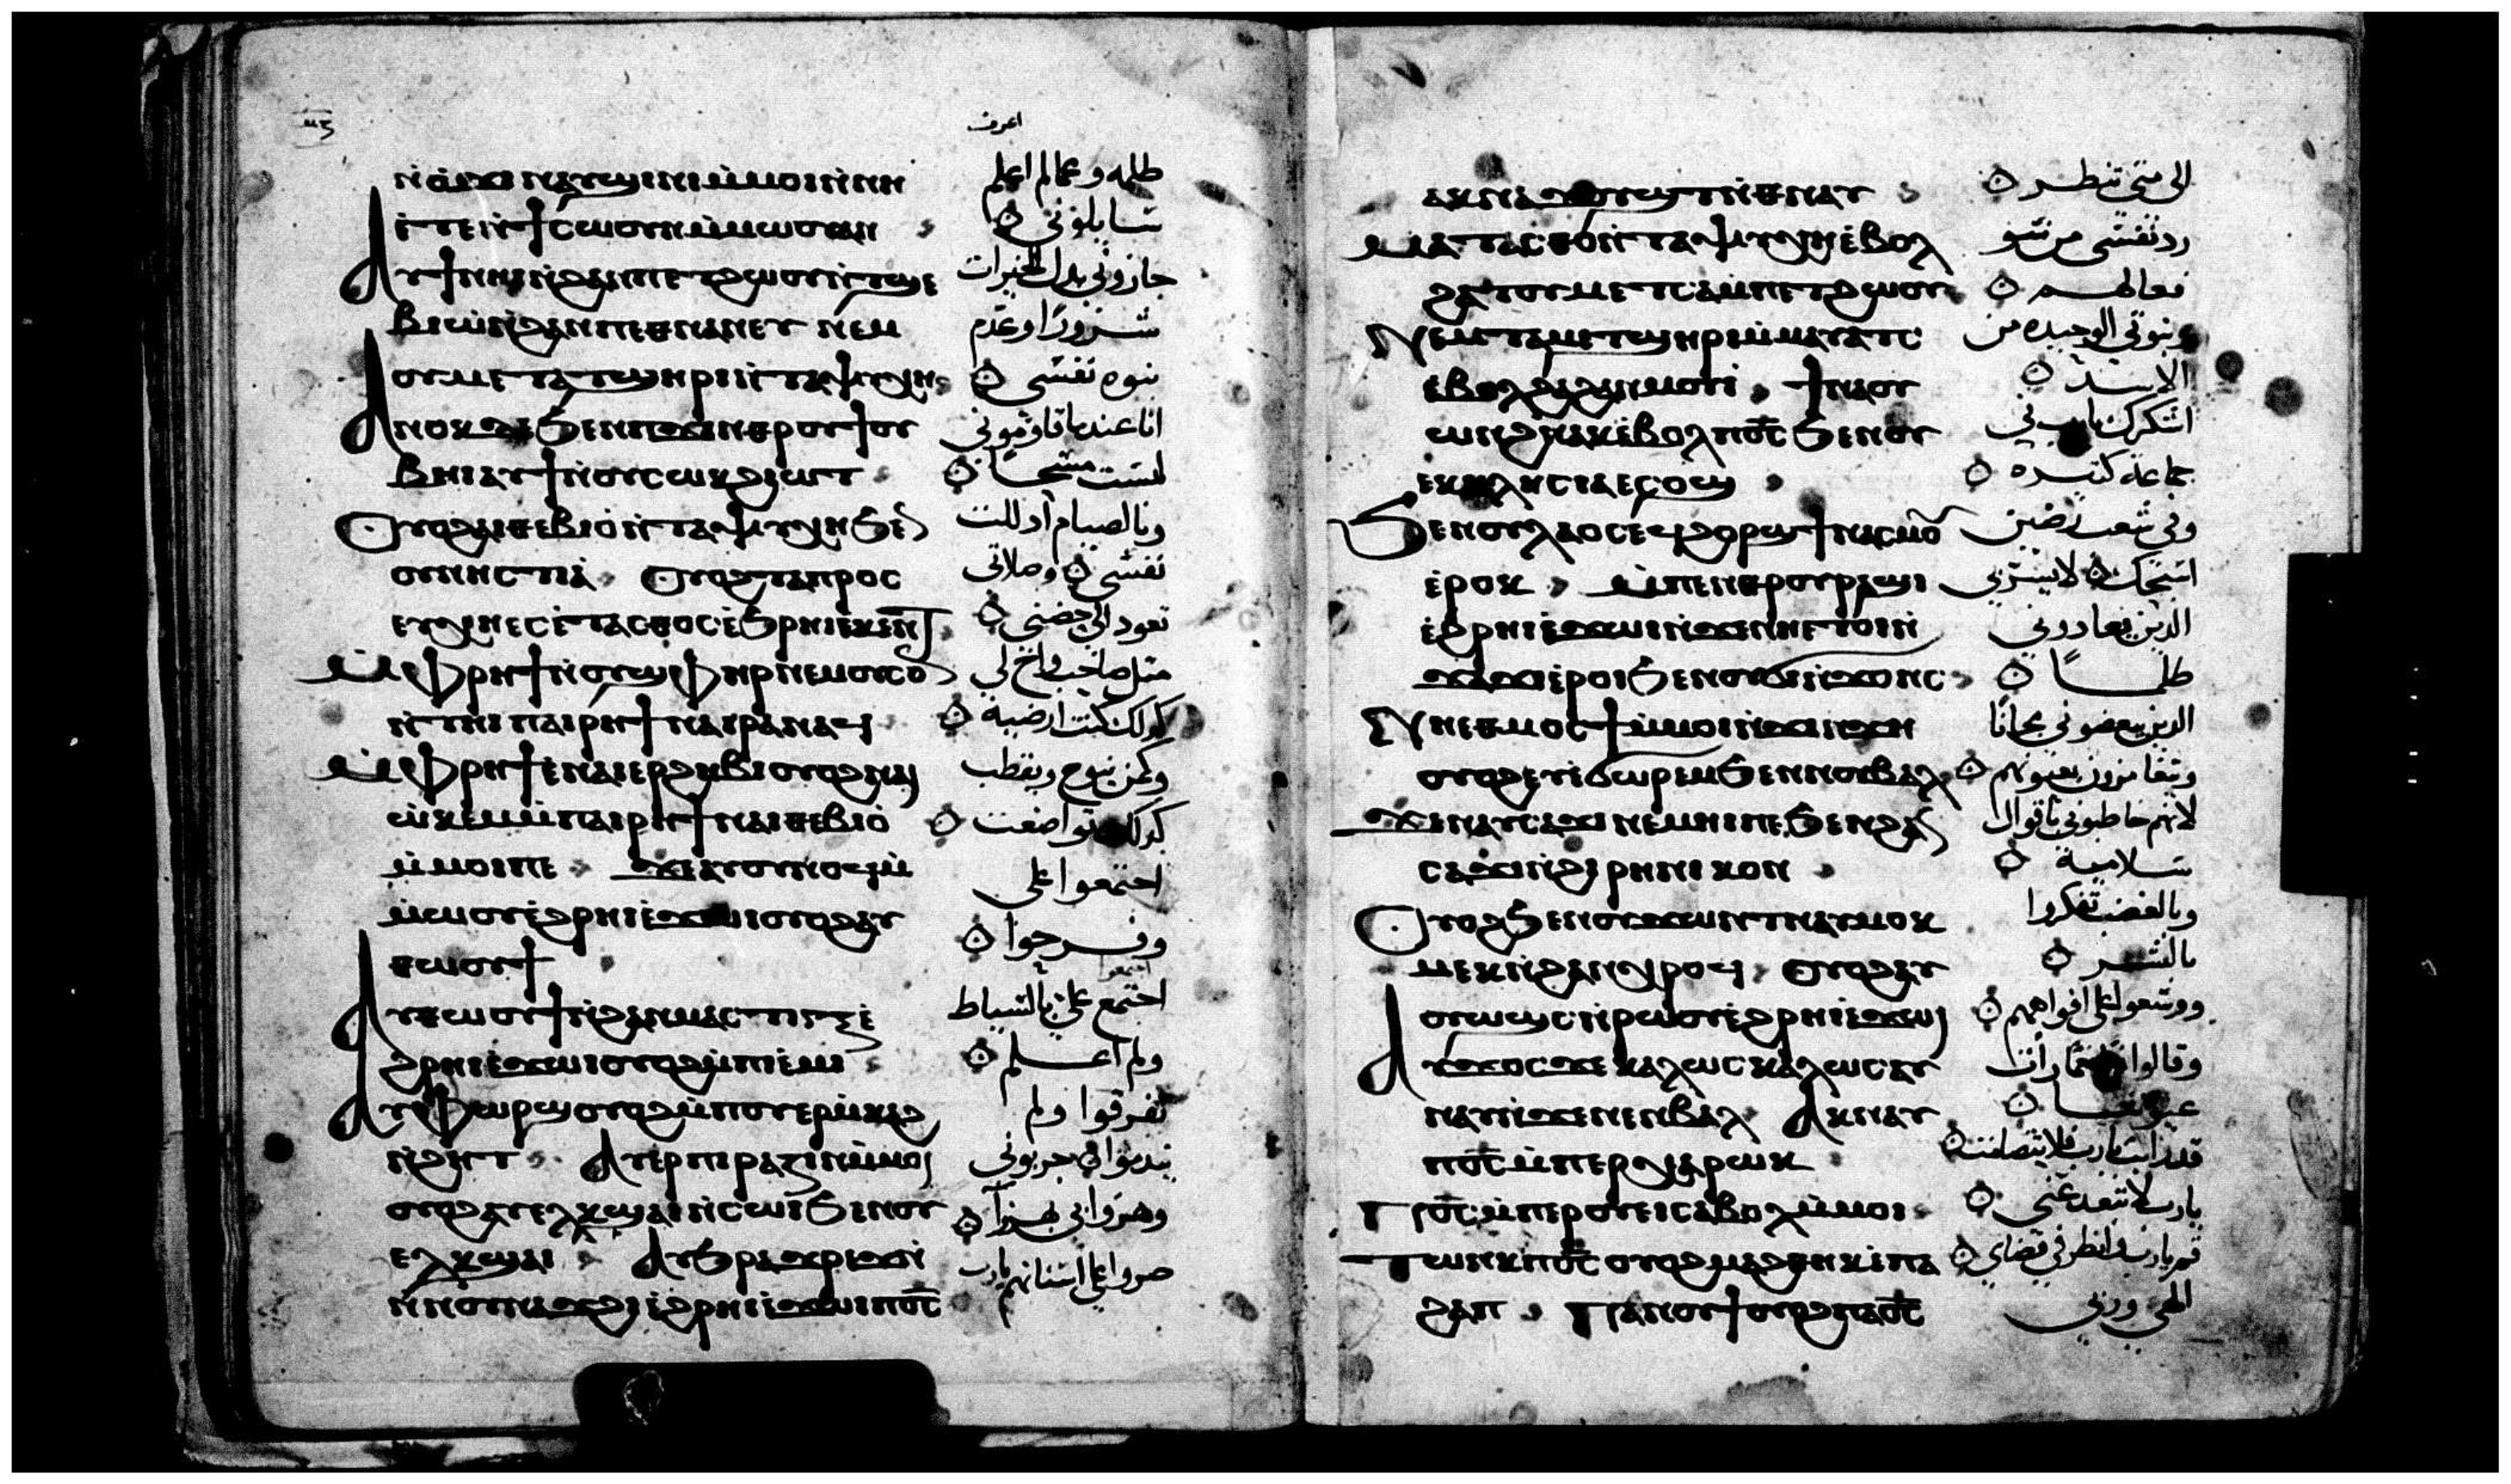 ⲙⲍ
ⲛ̀ϭⲓⲛϫⲟⲛⲥ ⲛⲁⲩϣⲓⲛⲓ ⲙ̀ⲙⲟⲓ ⲛ̀ⲛⲏ
ⲉ̀ⲧⲉ ⲛ̀ϯⲥⲱⲟⲩⲛ ⲙ̀ⲙⲱⲟⲩ ⲁⲛ
ⲁⲩϯ ⲛⲏⲓ ⲛ̀ϩⲁⲛⲡⲉⲧϩⲱⲟⲩ ⲛ̀ⲧϣⲉ
ⲃⲓⲱ̀ ⲛ̀ϩⲁⲛⲡⲉⲑⲛⲁⲛⲉⲩ ⲛⲉⲙ
ⲟⲩⲙⲉⲧⲁⲧϣⲏⲣⲓ ⲛ̀ⲧⲁⲯⲩⲭⲏ
ⲁⲛⲟⲕ ⲇⲉ ϧⲉⲛ ⲡϫⲓⲛⲑⲣⲟⲩϯⲟⲩ
ⲃⲏⲓ ⲁⲩϯ ⲛ̀ⲟⲩⲥⲱⲕ ϩⲓⲱⲧ
ⲟⲩⲟϩ ⲁⲓⲑⲉⲃⲓⲟ̀ ⲛ̀ⲧⲁⲯⲩⲭⲏ ϧⲉⲛ
ⲟⲩⲛⲏⲥⲧⲓⲁ̀ ⲟⲩⲟϩ ⲧⲁⲡⲣⲟⲥ
ⲉⲩⲭⲏ ⲉⲥⲉ̀ⲧⲁⲥⲑⲟⲥ ⲉ̀ϧⲣⲏⲓ ⲉ̀ⲕⲉⲛⲧ
ⲙ̀ⲫⲣⲏϯ ⲛ̀ⲟⲩϣⲫⲏⲣ ⲛⲉⲙ ⲟⲩⲥⲟⲛ
ⲛ̀ⲧⲏⲓ ⲡⲁⲓⲣⲏϯ ⲛⲁⲓⲣⲁⲛⲁϥ
ⲙ̀ⲫⲣⲏϯ ⲉ̀ⲛⲁⲓⲉⲣϩⲏⲃⲓ ⲟⲩⲟϩ ⲛⲁⲓ
ⲱ̀ⲕⲉⲙ ⲙ̀ⲡⲁⲓⲣⲏϯ ⲛⲁⲓⲑⲉⲃⲓⲟ̀
ⲙ̀ⲙⲟⲓ ⲡⲉ ϫⲉ ⲁⲩⲟⲩⲛⲟϥ ⲙ̀
ⲙⲱⲟⲩ ⲉ̀ϩⲣⲏⲓ ⲉ̀ϫⲱⲓ ⲟⲩⲟϩ ⲁⲩ
ⲑⲱⲟⲩϯ
ⲁⲩⲑⲱⲟⲩϯ ⲛ̀ϩⲁⲛⲙⲁⲥⲧⲓⲅⲝ ⲉ̀
ϩⲣⲏⲓ ⲉ̀ϫⲱⲓ ⲟⲩⲟϩ ⲙ̀ⲡⲓⲉ̀ⲙⲓ
ⲁⲩⲫⲱⲣϣ ⲟⲩⲟϩ ⲙ̀ⲡⲟⲩⲉⲣⲙ̀ⲕⲁϩ
ⲛ̀ϩⲏⲧ ⲁⲩⲉⲣⲡⲓⲣⲁⲍⲓⲛ ⲙ̀ⲙⲟⲓ
ⲟⲩⲟϩ ⲁⲩⲉⲗⲕϣⲁⲓ ⲛ̀ⲥⲱⲓ ϧⲉⲛ ⲟⲩ
ⲉⲗⲕϣⲁⲓ ⲁⲩϧⲣⲁϫⲣⲉϫ ⲛ̀
ⲛ̀ⲛⲟⲩⲛⲁϫϩⲓ ⲉ̀ϩⲣⲏⲓ ⲉ̀ϫⲱⲓ ⲡⲟ̅ⲥ̅
اعرف
ظلمه وعمالم اعلم
تسايلوني
جازوني بدل الخيرات
شرورًا وعدم
بنوه نفسي
انا عندما قاوموني
لبست مسحًا
وبالصيام اذللت
نفسي وصلاتي
تعود الى حضني
مثل صاحب واخ لي
كذلك كنت ارضيه
وكمن ينوح ويقطب
كذلك تواضعت
اجتمعوا علي
وفرحوا
اجتمع علي بالسياط
ولم اعلم
تفرقوا ولم
يندموا جربوني
وهزوا بي هزًا
صروا علي اسنانهم يارب
ⲁⲕⲛⲁϫⲟⲩϣⲧ ⲛ̀ⲑⲛⲁⲩ
ⲙⲁⲧⲁⲥⲑⲟ ⲛ̀ⲧⲁⲯⲩⲭⲏ ⲉ̀ⲃⲟⲗ
ϩⲁ ⲧⲟⲩⲙⲉⲧⲥⲁⲙⲡⲉⲧϩⲱⲟⲩ
ⲛⲉⲙ ⲧⲁⲙⲉⲧϣⲏⲣⲓ ⲙ̀ⲙⲁⲩⲁⲧⲥ
ⲉⲃⲟⲗ ϩⲁ ϩⲁⲛⲙⲟⲩⲓ̀ ϯⲛⲁⲟⲩ
ⲱⲛϩ ⲛⲁⲕ ⲉ̀ⲃⲟⲗ ⲡⲟ̅ⲥ̅ ϧⲉⲛ ⲟⲩ
ⲉⲕⲕⲗⲏⲥⲓⲁ ⲉⲥⲟϣ
ϧⲉⲛ ⲟⲩⲗⲁⲟⲥ ⲉϥϩⲟⲣϣ ϯⲛⲁⲥⲙⲟⲩ
ⲉ̀ⲣⲟⲕ ⲙ̀ⲡⲉⲛⲑⲣⲟⲩⲣⲁϣⲓ
ⲉ̀ϩⲣⲏⲓ ⲉ̀ϫⲱⲓ ⲛ̀ϫⲉ ⲛⲏⲉⲧⲟⲓ ⲛ̀
ϫⲁϫⲓ ⲉ̀ⲣⲟⲓ ϧⲉⲛ ⲟⲩϭⲓⲛϫⲟⲛⲥ
ⲛⲏⲉⲑⲙⲟⲥϯ ⲙ̀ⲙⲟⲓ ⲛ̀ϫⲓⲛϫⲏ
ⲟⲩⲟϩ ⲉⲩϭⲱⲣⲉⲙ ϧⲉⲛ ⲛⲟⲩⲃⲁⲗ
ϫⲉ ⲛⲁⲩⲥⲁϫⲓ ⲛⲉⲙⲏⲓ ⲡⲉ ϧⲉⲛ ϩⲁⲛ
ⲥⲁϫⲓ ⲛ̀ϩⲓⲣⲏⲛⲓⲕⲟⲛ
ⲟⲩⲟϩ ϧⲉⲛ ⲟⲩϫⲱⲛⲧ ⲛⲁⲩⲙⲟⲕ
ⲙⲉⲕ ⲛ̀ϩⲁⲛⲭⲣⲟϥ ⲟⲩⲟϩ ⲁⲩ
ⲟⲩⲱϣⲥ ⲛ̀ⲣⲱⲟⲩ ⲉ̀ϩⲣⲏⲓ ⲉ̀ϫⲱⲓ
ⲁⲩϫⲟⲥ ϫⲉ ⲕⲁⲗⲱⲥ ⲕⲁⲗⲱⲥ ⲁⲩ
ⲛⲁⲩ ⲛ̀ϫⲉ ⲛⲉⲛⲃⲁⲗ ⲁⲕⲛⲁⲩ
ⲡⲟ̅ⲥ̅ ⲙ̀ⲡⲉⲣⲭⲁⲣⲱⲕ
ⲡⲟ̅ⲥ̅ ⲙ̀ⲡⲉⲣⲟⲩⲉⲓ ⲥⲁⲃⲟⲗ ⲙ̀ⲙⲟⲓ
ⲧⲱⲛⲕ ⲡⲟ̅ⲥ̅ ⲟⲩⲟϩ ⲙⲁϩⲑⲏⲕ ⲉ̀ⲡⲁ
ϩⲁⲡ ⲡⲁⲛⲟⲩϯ ⲟⲩⲟϩ ⲡⲁⲟ̅ⲥ̅
الى متى تنظر
رد نفسي من سو
فعالهم
وبنوتي الوحيده من
الاسد
اشكرك يارب في
جماعه كثيره
وفي شعب رضين
اسبحك لا يسر بي
الذين يعادوني
ظلمًا
الذين يبغضوني مجانًا
ويتغامزون بعيونهم
لانهم خاطبوني باقوال
سلاميه
وبالغضب تفكروا
بالشر
ووسعوا علي افواههم
وقالوا نعمًا رات
عيوننا
قد رايت يارب فلا تصمت
يارب لا تبعد عني
قم يارب وانظر في قضاي
الهي وربي